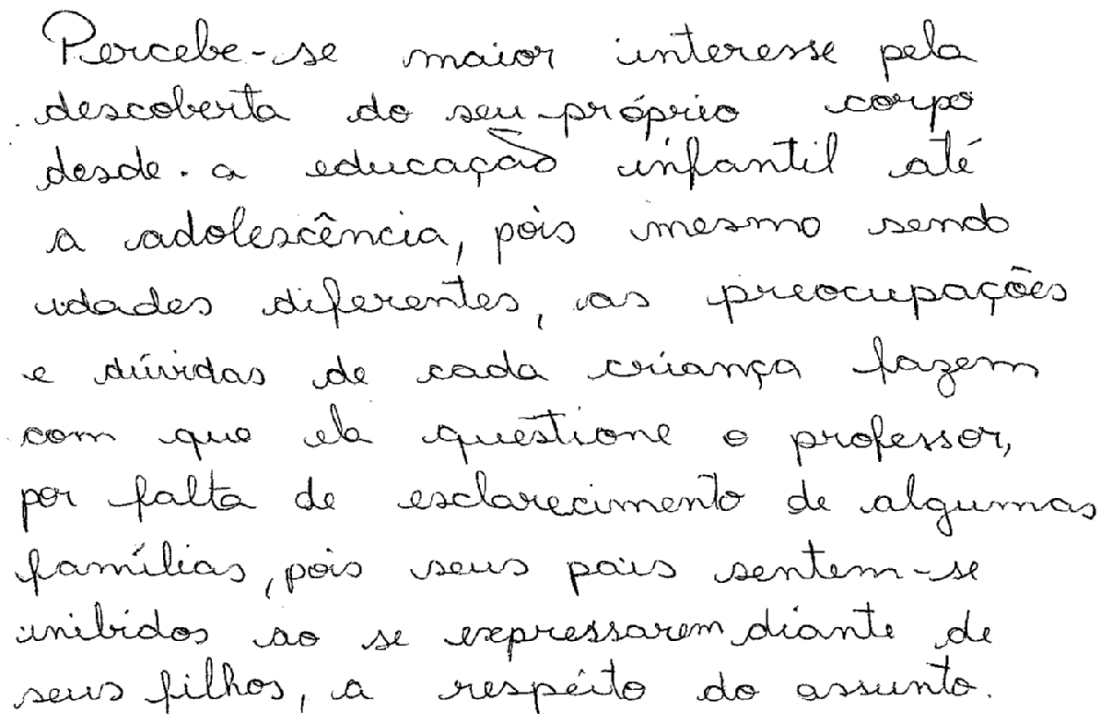 Percebe-se maior interesse pela
descoberta do seu próprio corpo
desde a educação infantil até
a adolescência, pois mesmo sendo
idades diferentes, as preocupações
e dúvidas de cada criança fazem
com que ela questione o professor,
por falta de esclarecimento de algumas
famílias, pois seus pais sentem-se
inibidos ao se expressarem diante de
seus filhos, a respeito do assunto.